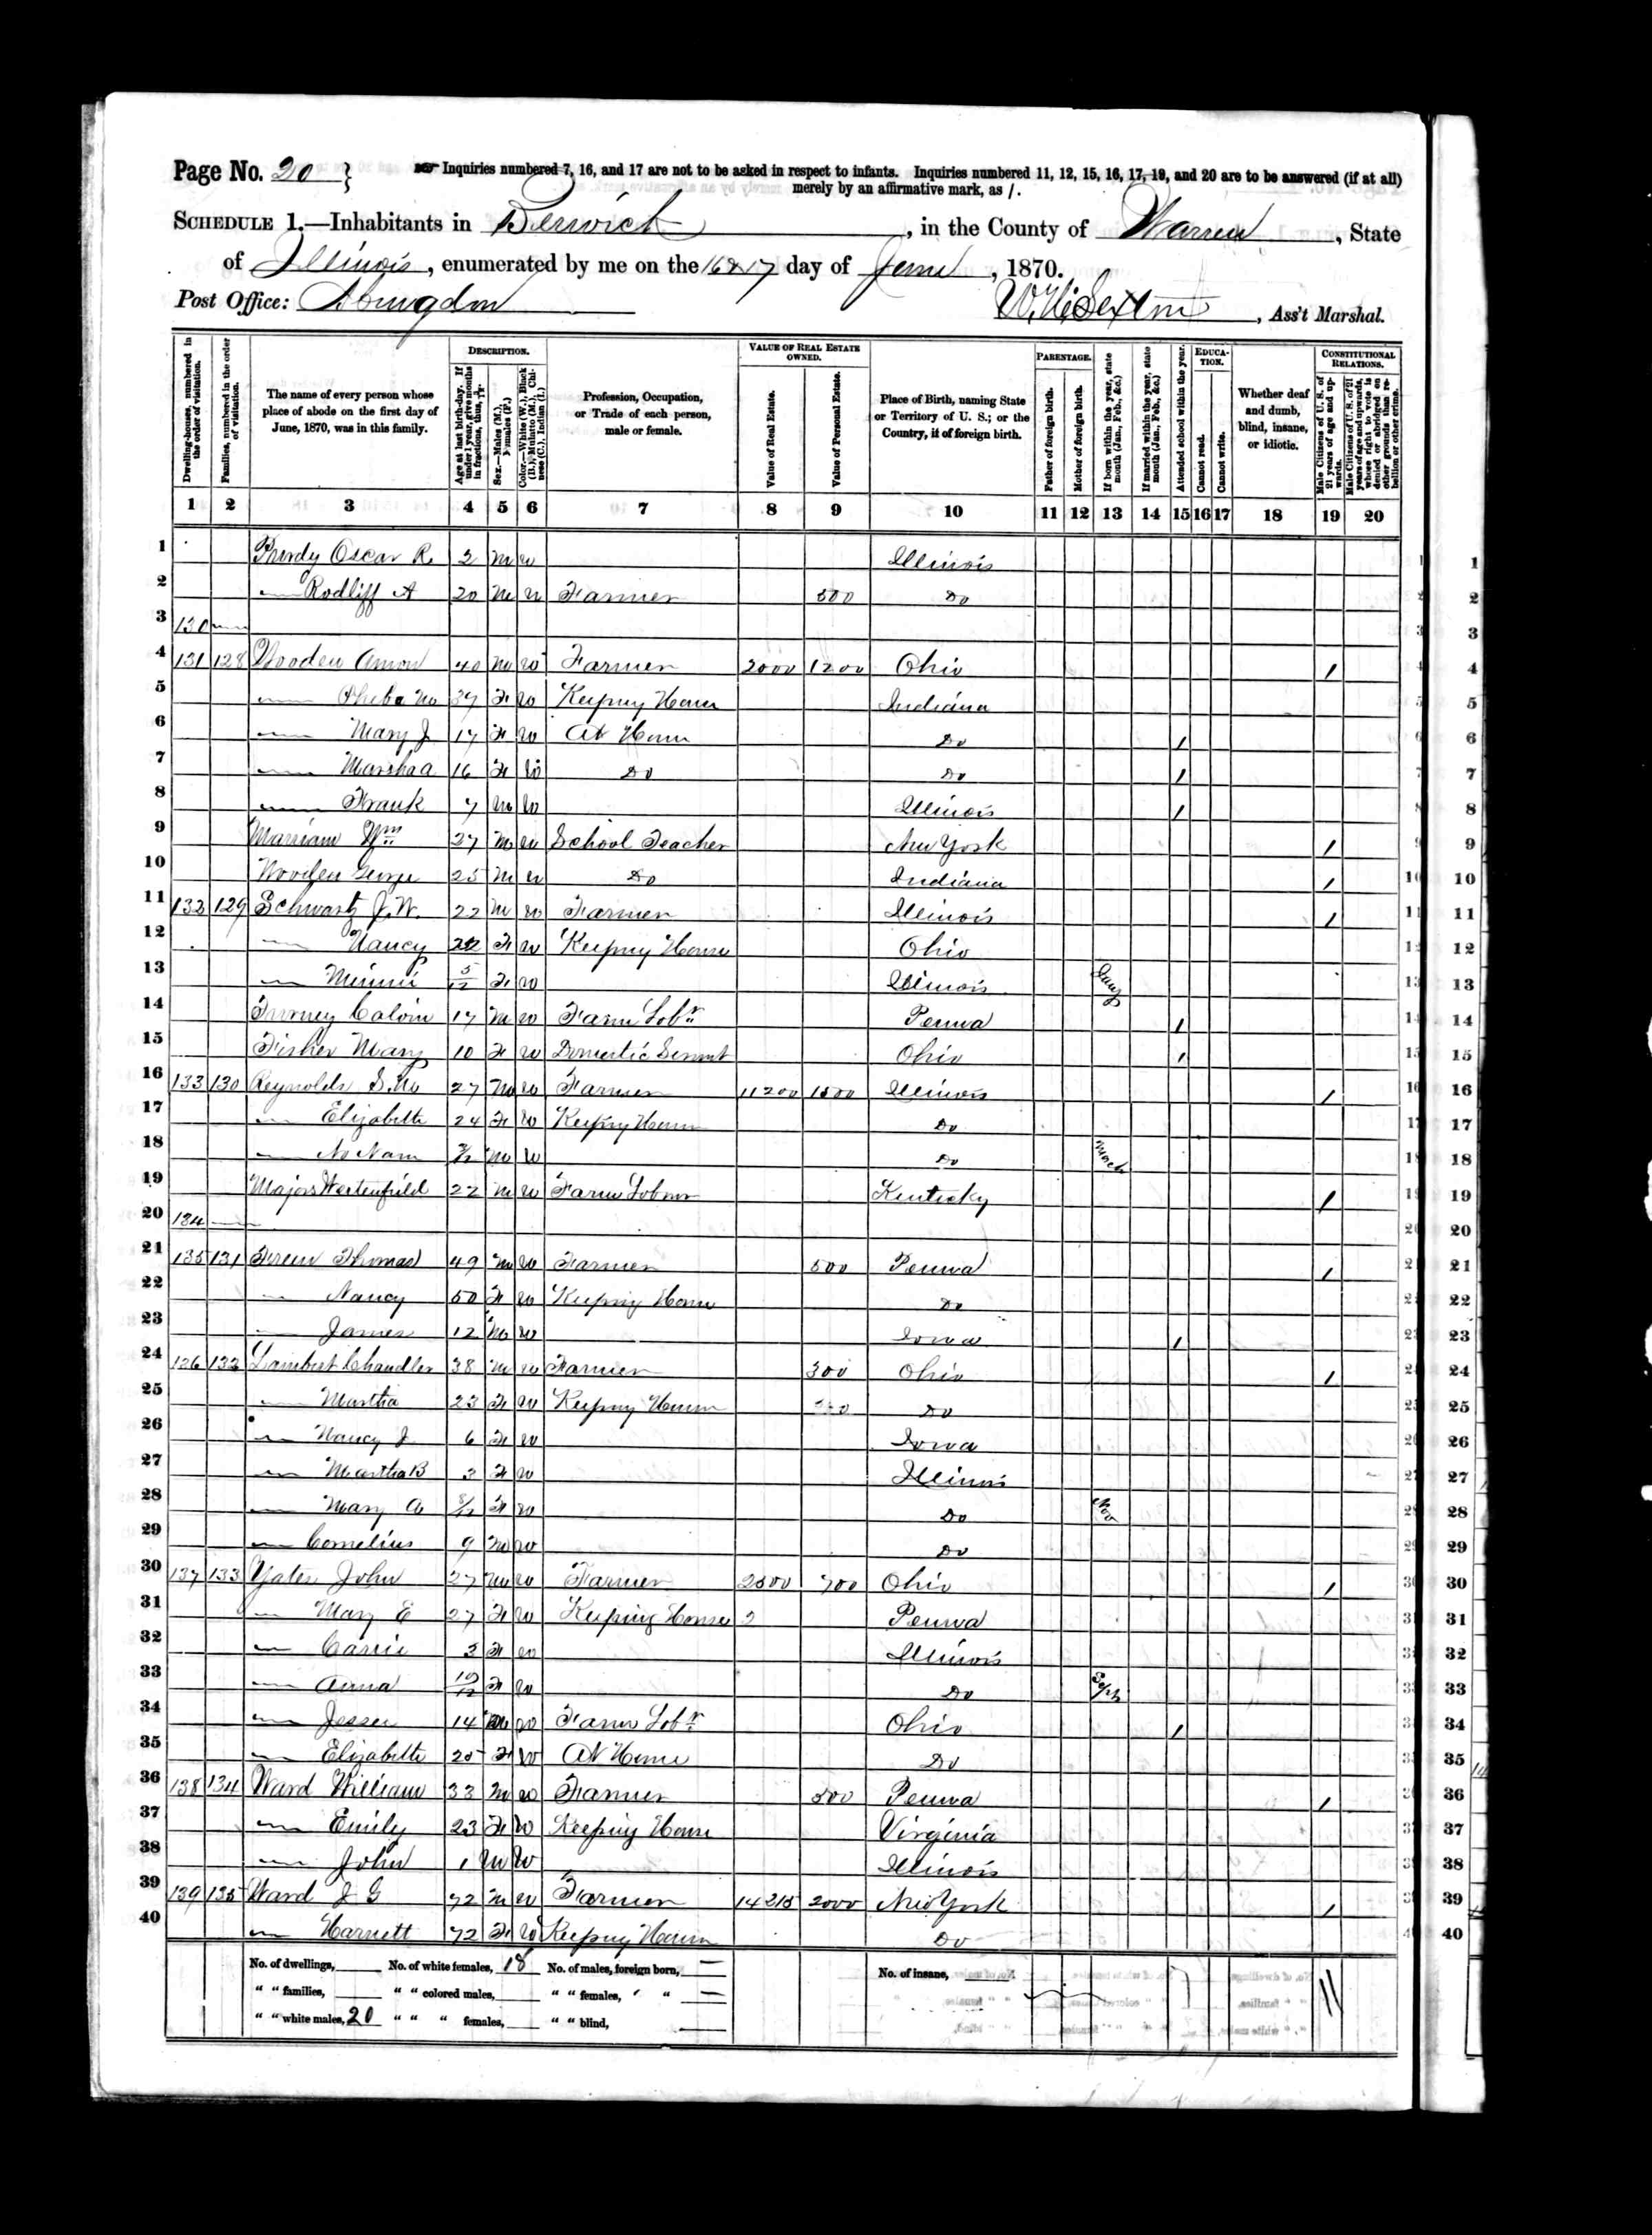 Page No. 20 } Inquiries numbered 7, 16, and 17 are not to be asked in respect to infants. Inquiries numbered 11, 12, 15, 16, 17, 19, and 20 are to be answered (if at all)
merely by an affirmative mark, as /.
SCHEDULE 1.—Inhabitants in Berwick, in the County of Warren, State
of Illinois, enumerated by me on the 16 & 17 day of June, 1870.
Post Office: Abingdon
W. H. Sexton, Ass't Marshal.
DESCRIPTION. VALUE OF REAL ESTATE OWNED. PARENTAGE. EDUCATION. CONSTITUTIONAL RELATIONS.
Dwelling-houses, numbered in the order of visitation.
Families, numbered in the order of visitation.
The name of every person whose place of abode on the first day of June, 1870, was in this family.
Age at last birth-day. If under 1 year, give months in fractions, thus, 3/12.
Sex.—Males (M.), Females (F.)
Color.—White (W.), Black (B.), Mulatto (M.), Chinese (C.), Indian (I.)
Profession, Occupation, or Trade of each person, male or female.
Value of Real Estate.
Value of Personal Estate.
Place of Birth, naming State or Territory of U. S.; or the Country, if of foreign birth.
Father of foreign birth.
Mother of foreign birth.
If born within the year, state month (Jan., Feb., &c.)
If married within the year, state month (Jan., Feb., &c.)
Attended school within the year.
Cannot read.
Cannot write.
Whether deaf and dumb, blind, insane, or idiotic.
Male Citizens of U. S. of 21 years of age and upwards.
Male Citizens of U. S. of 21 years of age and upwards, whose right to vote is denied or abridged on other grounds than rebellion or other crime.
1 2 3 4 5 6 7 8 9 10 11 12 13 14 15 16 17 18 19 20
1 Purdy Oscar R. 2 M W Illinois 1
2 — Rodliff A 20 M W Farmer 500 Do 2
3 130 — 3
4 131 128 Wooden Amon 40 M W Farmer 2000 1200 Ohio / 4
5 — Pheba M 39 F W Keeping House Indiana 5
6 — Mary J 17 F W At Home Do / 6
7 — Marsha A 16 F W Do Do / 7
8 — Frank 7 M W Illinois / 8
9 Marriam Wm 27 M W School Teacher New York / 9
10 Wooden George 25 M W Do Indiana / 10
11 132 129 Schwartz J. W. 22 M W Farmer Illinois / 11
12 — Nancy 22 F W Keeping House Ohio 12
13 — Minnie 5/12 F W Illinois Jany 13
14 Calvin 17 M W Farm Labr Penna / 14
15 Fisher Mary 10 F W Domestic Servnt Ohio / 15
16 133 130 Reynolds S. M 27 M W Farmer 11200 1500 Illinois / 16
17 — Elizabeth 24 F W Keeping House Do 17
18 — No Name 3/12 M W Do March 18
19 Majors 22 M W Farm Labour Kentucky / 19
20 134 — 20
21 135 131 Thomas 49 M W Farmer 500 Penna / 21
22 — Nancy 50 F W Keeping House Do 22
23 — James 12 M W Iowa / 23
24 136 132 Lambert Chandler 38 M W Farmer 300 Ohio / 24
25 — Martha 23 F W Keeping House Do 25
26 — Nancy J 6 F W Iowa 26
27 — Martha B 3 F W Illinois 27
28 — Mary A 8/12 F W Do Nov 28
29 — Cornelius 9 M W Do 29
30 137 133 Yates John 27 M W Farmer 2500 700 Ohio / 30
31 — Mary E 27 F W Keeping House Penna 31
32 — Carrie 3 F W Illinois 32
33 — Anna 10/12 F W Do Sept 33
34 — Jesse 14 M W Farm Labr Ohio / 34
35 — Elizabeth 25 F W At Home Do 35
36 138 134 Ward William 33 M W Farmer 500 Penna / 36
37 — Emily 23 F W Keeping House Virginia 37
38 — John 1 M W Illinois 38
39 139 135 Ward J G 72 M W Farmer 14215 2000 New York / 39
40 — Harriett 72 F W Keeping House Do 40
No. of dwellings, No. of white females, 18 No. of males, foreign born, — No. of insane,
" " families, " " colored males, " " females, " " —
" " white males, 20 " " " females, " " blind, 11